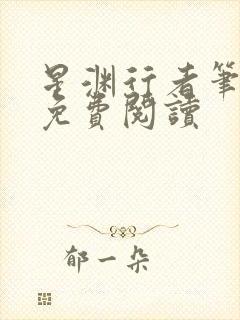 星渊行者筆
免費閱讀
郁一朵